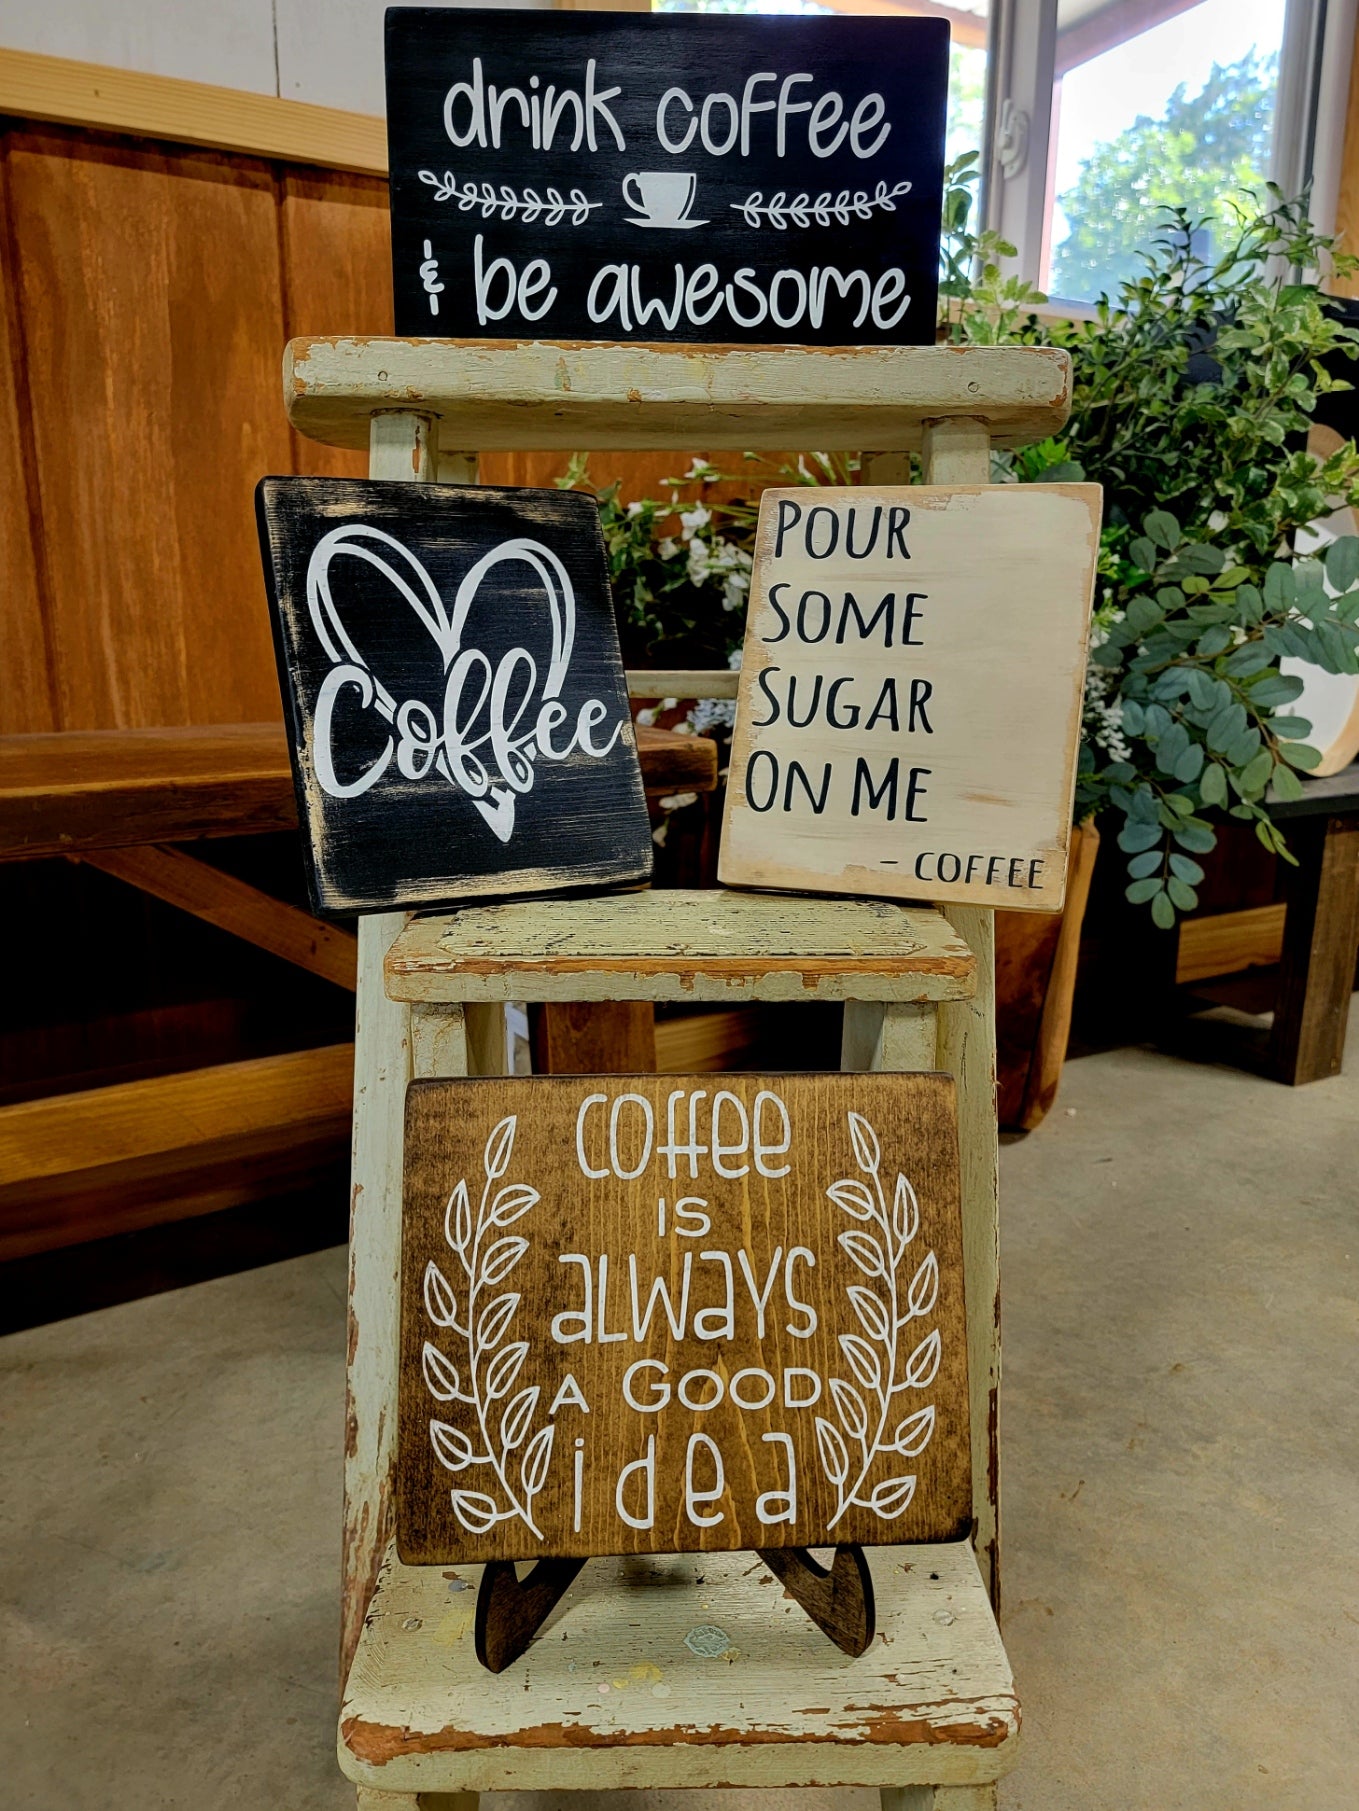 drink coffee
& be awesome
Coffee
POUR
SOME
SUGAR
ON ME
- COFFEE
coffee
IS
aLWaYS
A GOOD
idea